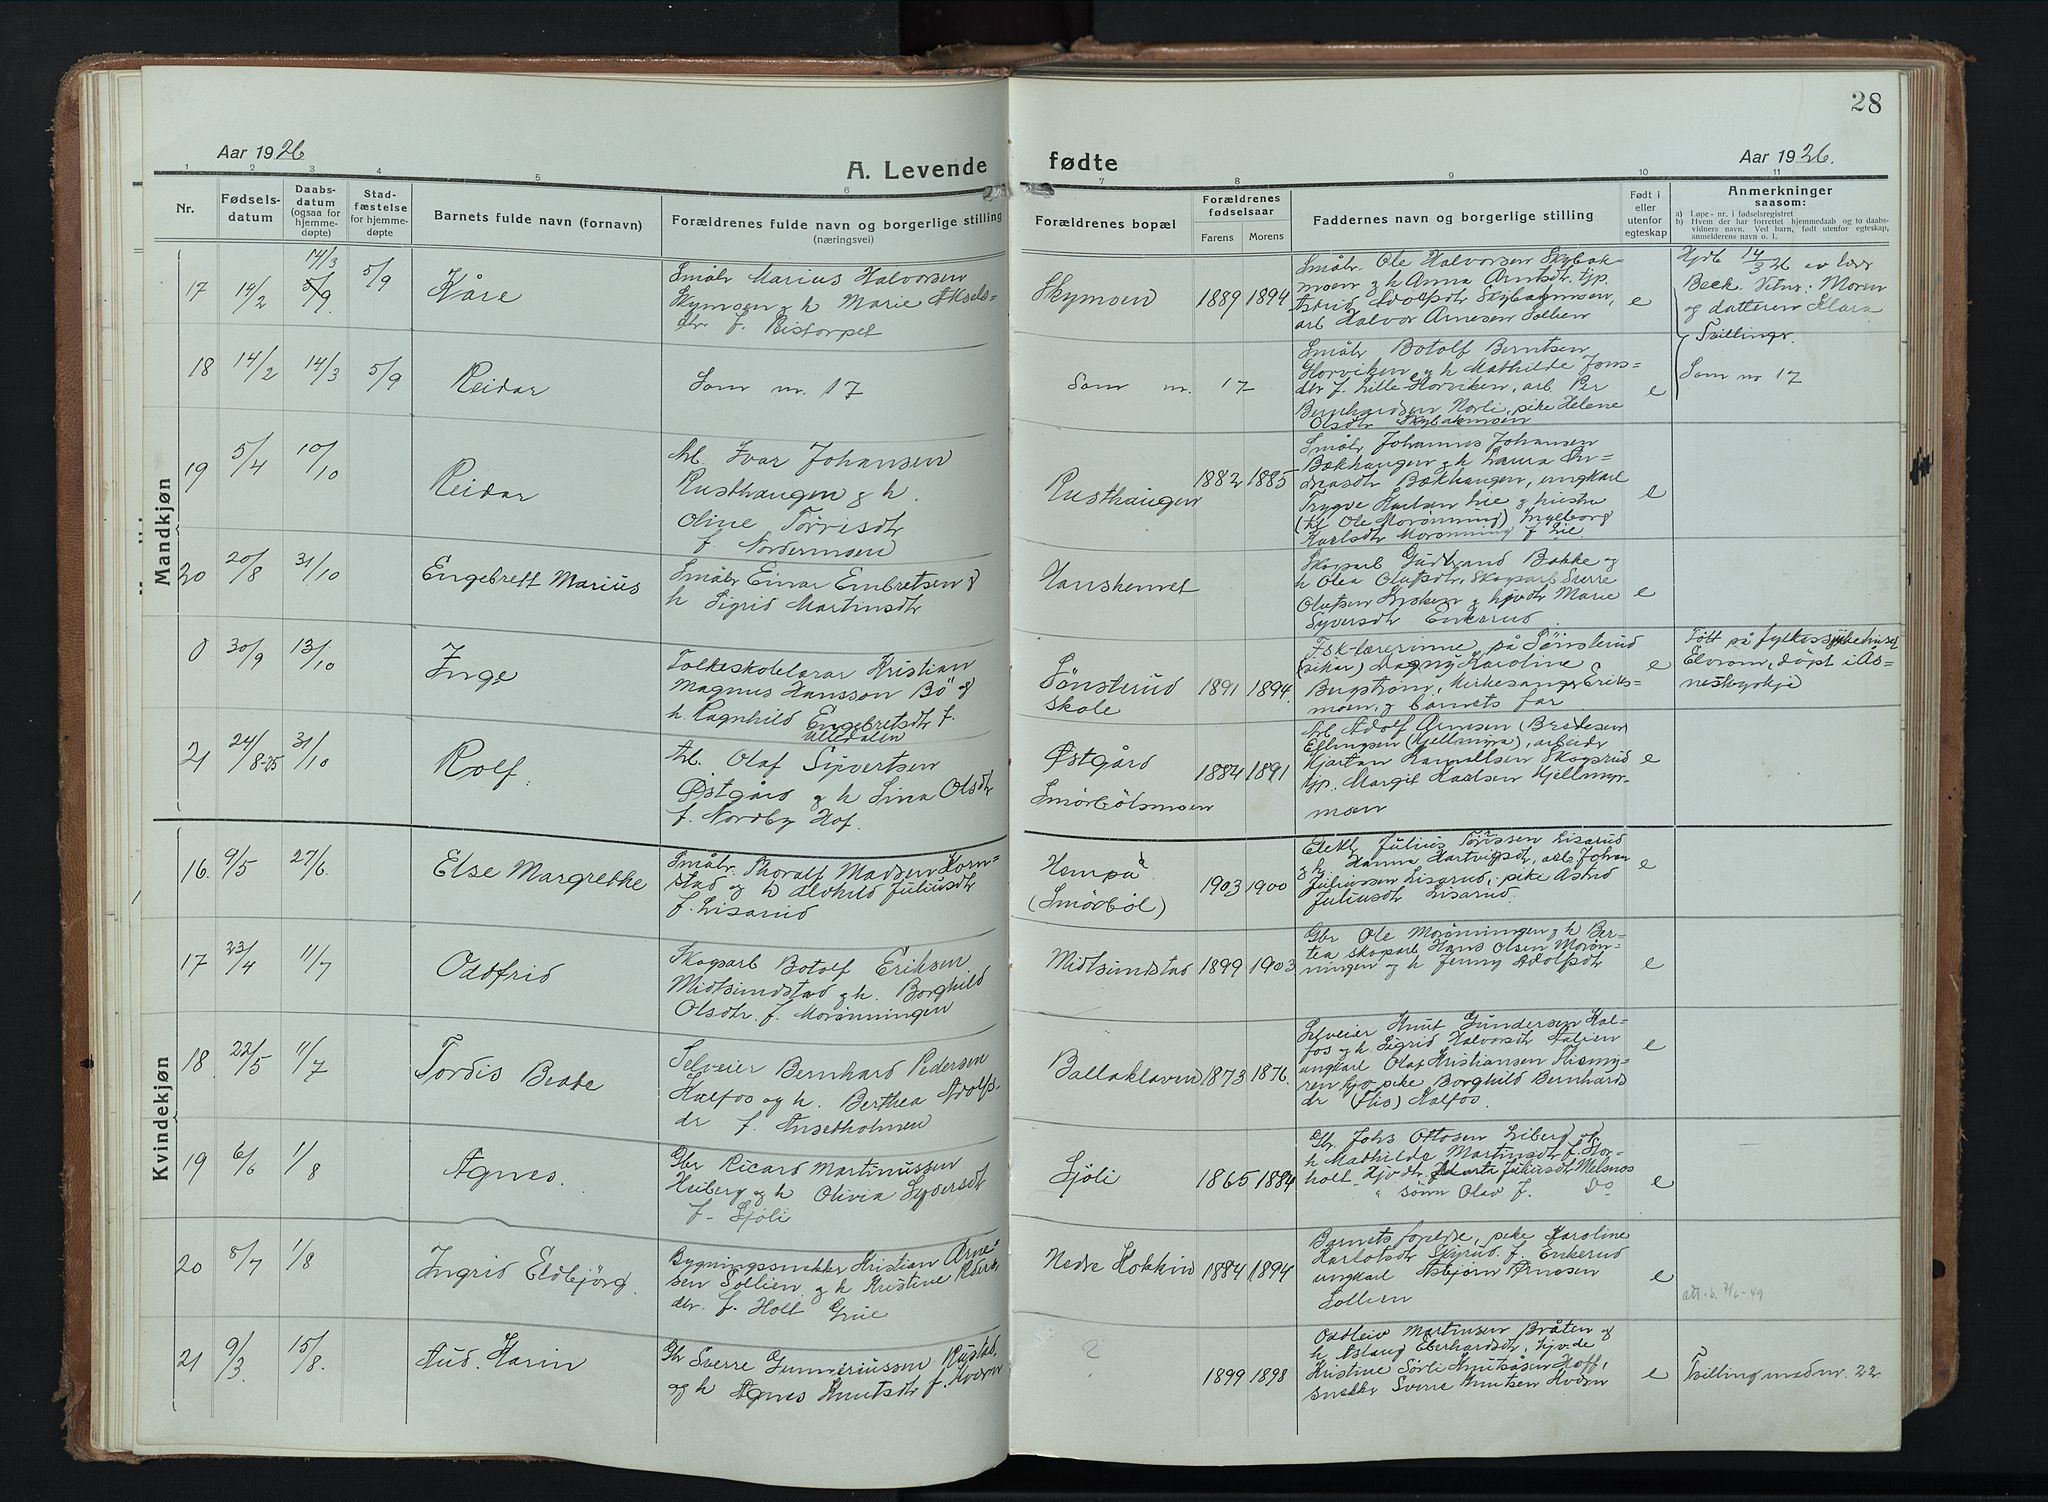 28
Aar 1926
A. Levende
fødte
Aar 1926.
1 2 3 4 5 6 7 8 9 10 11
Nr.
Fødsels-
datum
Daabs-
datum
(ogsaa for
hjemme-
døpte)
Stad-
fæstelse
for hjemme-
døpte
Barnets fulde navn (fornavn)
Forældrenes fulde navn og borgerlige stilling
(næringsvei)
Forældrenes bopæl
Forældrenes
fødselsaar
Farens Morens
Faddernes navn og borgerlige stilling
Født i
eller
utenfor
egteskap
Anmerkninger
saasom:
a) Løpe-nr. i fødselsregistret
b) Hvem der har forrettet hjemmedaab og to daabs-
vidners navn. Ved barn, født utenfor egteskap,
anmelderens navn o. l.
Mandkjøn
17 14/2 14/3 5/9 5/9 Kåre
Småbr Marius Halvorsen
Skymoen og h Marie Aksels-
dtr. f.
Skymoen 1889 1894
Småbr. Ole Halvorsen Skybak-
moen og h Anna Arntsdtr tjp.
Astrid Adolfsdtr Skybakmoen,
arb Halvor Arnesen Sollien
e
Hjdb 14/3 26 av lær
Beck Vitnr: Moren
og datteren Klara
Tvillinger.
18 14/2 14/3 5/9 Reidar
Som nr. 17
Som nr. 17
Småbr Botolf Berntsen
Horviken og h Mathilde Jons-
dtr f. Lille Horviken, arb Per
Bernhardsen Norli, pike Helene
Olsdtr Skybakmoen
e
Som nr 17
19 5/4 10/10 Reidar
Arb. Ivar Johansen
Rusthaugen og h.
Oline Törrisdtr
f. Nordermoen
Rusthaugen 1882 1885
Småbr Johannes Johansen
Bækhaugen og h Laura An-
dreasdtr Bækhaugen, ungkarl
Trygve Karlsen Lie og hustru
Ole Morönning) Ingeborg
Karlsdtr Morönning f Lie
e
20 20/8 31/10 Engebrett Marius
Småbr Einar Embretsen og
h Sigrid Martinsdtr
Hanshemet
Skogsarb Gudbrand Bakke og
h Olea Olafsdtr, Skogsarb Sverre
Olafsen og hjvdtr Marie
Syversdtr Enkerud
e
0 30/9 13/10 Inge
Folkeskolelærar Kristian
Magnus Hansson Bö og
h. Ragnhild Engebretsdtr f.
Ulledalen
Sönsterud
skole 1891 1894
Fsk-lærerinne på Sönsterud
Magny Karoline
Bergström, Kirkesanger Eriks-
moen, og barnets far
e
Fött på fylkessjukehuset
Elvrom, döpt i Ås-
nesbygkje
21 24/8-25 31/10 Rolf.
Arb. Olaf Syvertsen
Östgård og h Lina Olsdtr
f. Nordby Hof.
Østgård
Smörbölsmoen 1884 1891
Arb Adolf Arnesen
(Kjellmyra), arbeidr
Hjartan Skogsrud
tjp. Margit Karlsen Kjellmyr-
moen
e
Kvindekjøn
16. 9/5 27/6. Else Margrethe
Småbr. Thoralf Madsen Korn-
stad og h Alfhild Juliusdtr
f. Lisarud
Hempa
(Smörböl) 1903 1900
Julius Törissen Lisarud
og h Hanna Hartvigsdtr, arb Johan
Juliussen Lisarud, pike Astrid
Juliusdtr Lisarud.
e
17 23/4 11/7 Oddfrid
Skogsarb Botolf Eriksen
Midtsundstad og h. Borghild
Olsdtr. f. Morönningen
Midtsundstad 1899 1903
Gbr Ole Morönningen og h Ber-
tea skogsarb Hans Olsen Morön-
ningen og h Jenny Adolfsdtr
e
18. 22/5 11/7 Tordis Beate
Selveier Bernhard Pedersen
Kalfos og h. Berthea Adolfs-
dr f. Ansetholmen
Ballaklaven 1873 1876.
Selveier Knut Gundersen Kal-
fos og h. Sigrid Halvorsdtr
ungkarl Olaf Kristiansen Flismy-
ren og pike Borghild Bernhards
dr (Flis) Kalfos.
e
19 6/6 1/8 Agnes.
Gbr Ricard Martinussen
Heiberg og h Olivia Syversdtr
f. Sjöli
Sjöli 1865 1884
Gbr Johs Ottosen Liberg og
h Mathilde Martinsdtr f. Kor-
holt, Hjv.dtr Juliusdtr Melsnes
" sönn Olav J. Do
e
20 5/7 1/8 Ingrid Eldbjörg.
Bygningssnekker Kristian Arne-
sen Sollien og h Kristine
dtr. f. Holt Grue
Nedre Hokkin 1884 1894
Barnets forældre, pike Karoline
Karlotsdtr f. Enkerud
ungkarl Asbjörn Arnesen
Sollien
e
att. s. 7/6-49
21 9/3. 15/8. Aud Karin
Gbr Sverre Gunneriussen Rustad
og h Agnes Knutsdtr f. Kværn
? 1899 1898
Oddleiv Martinsen Bråten og
h Aslaug Eberhardsdtr, hjv.de
Kristine Sörli Knutsdsen Hoff,
snekker Sverre Knutsen Kværn
e
Tvilling med nr. 22.